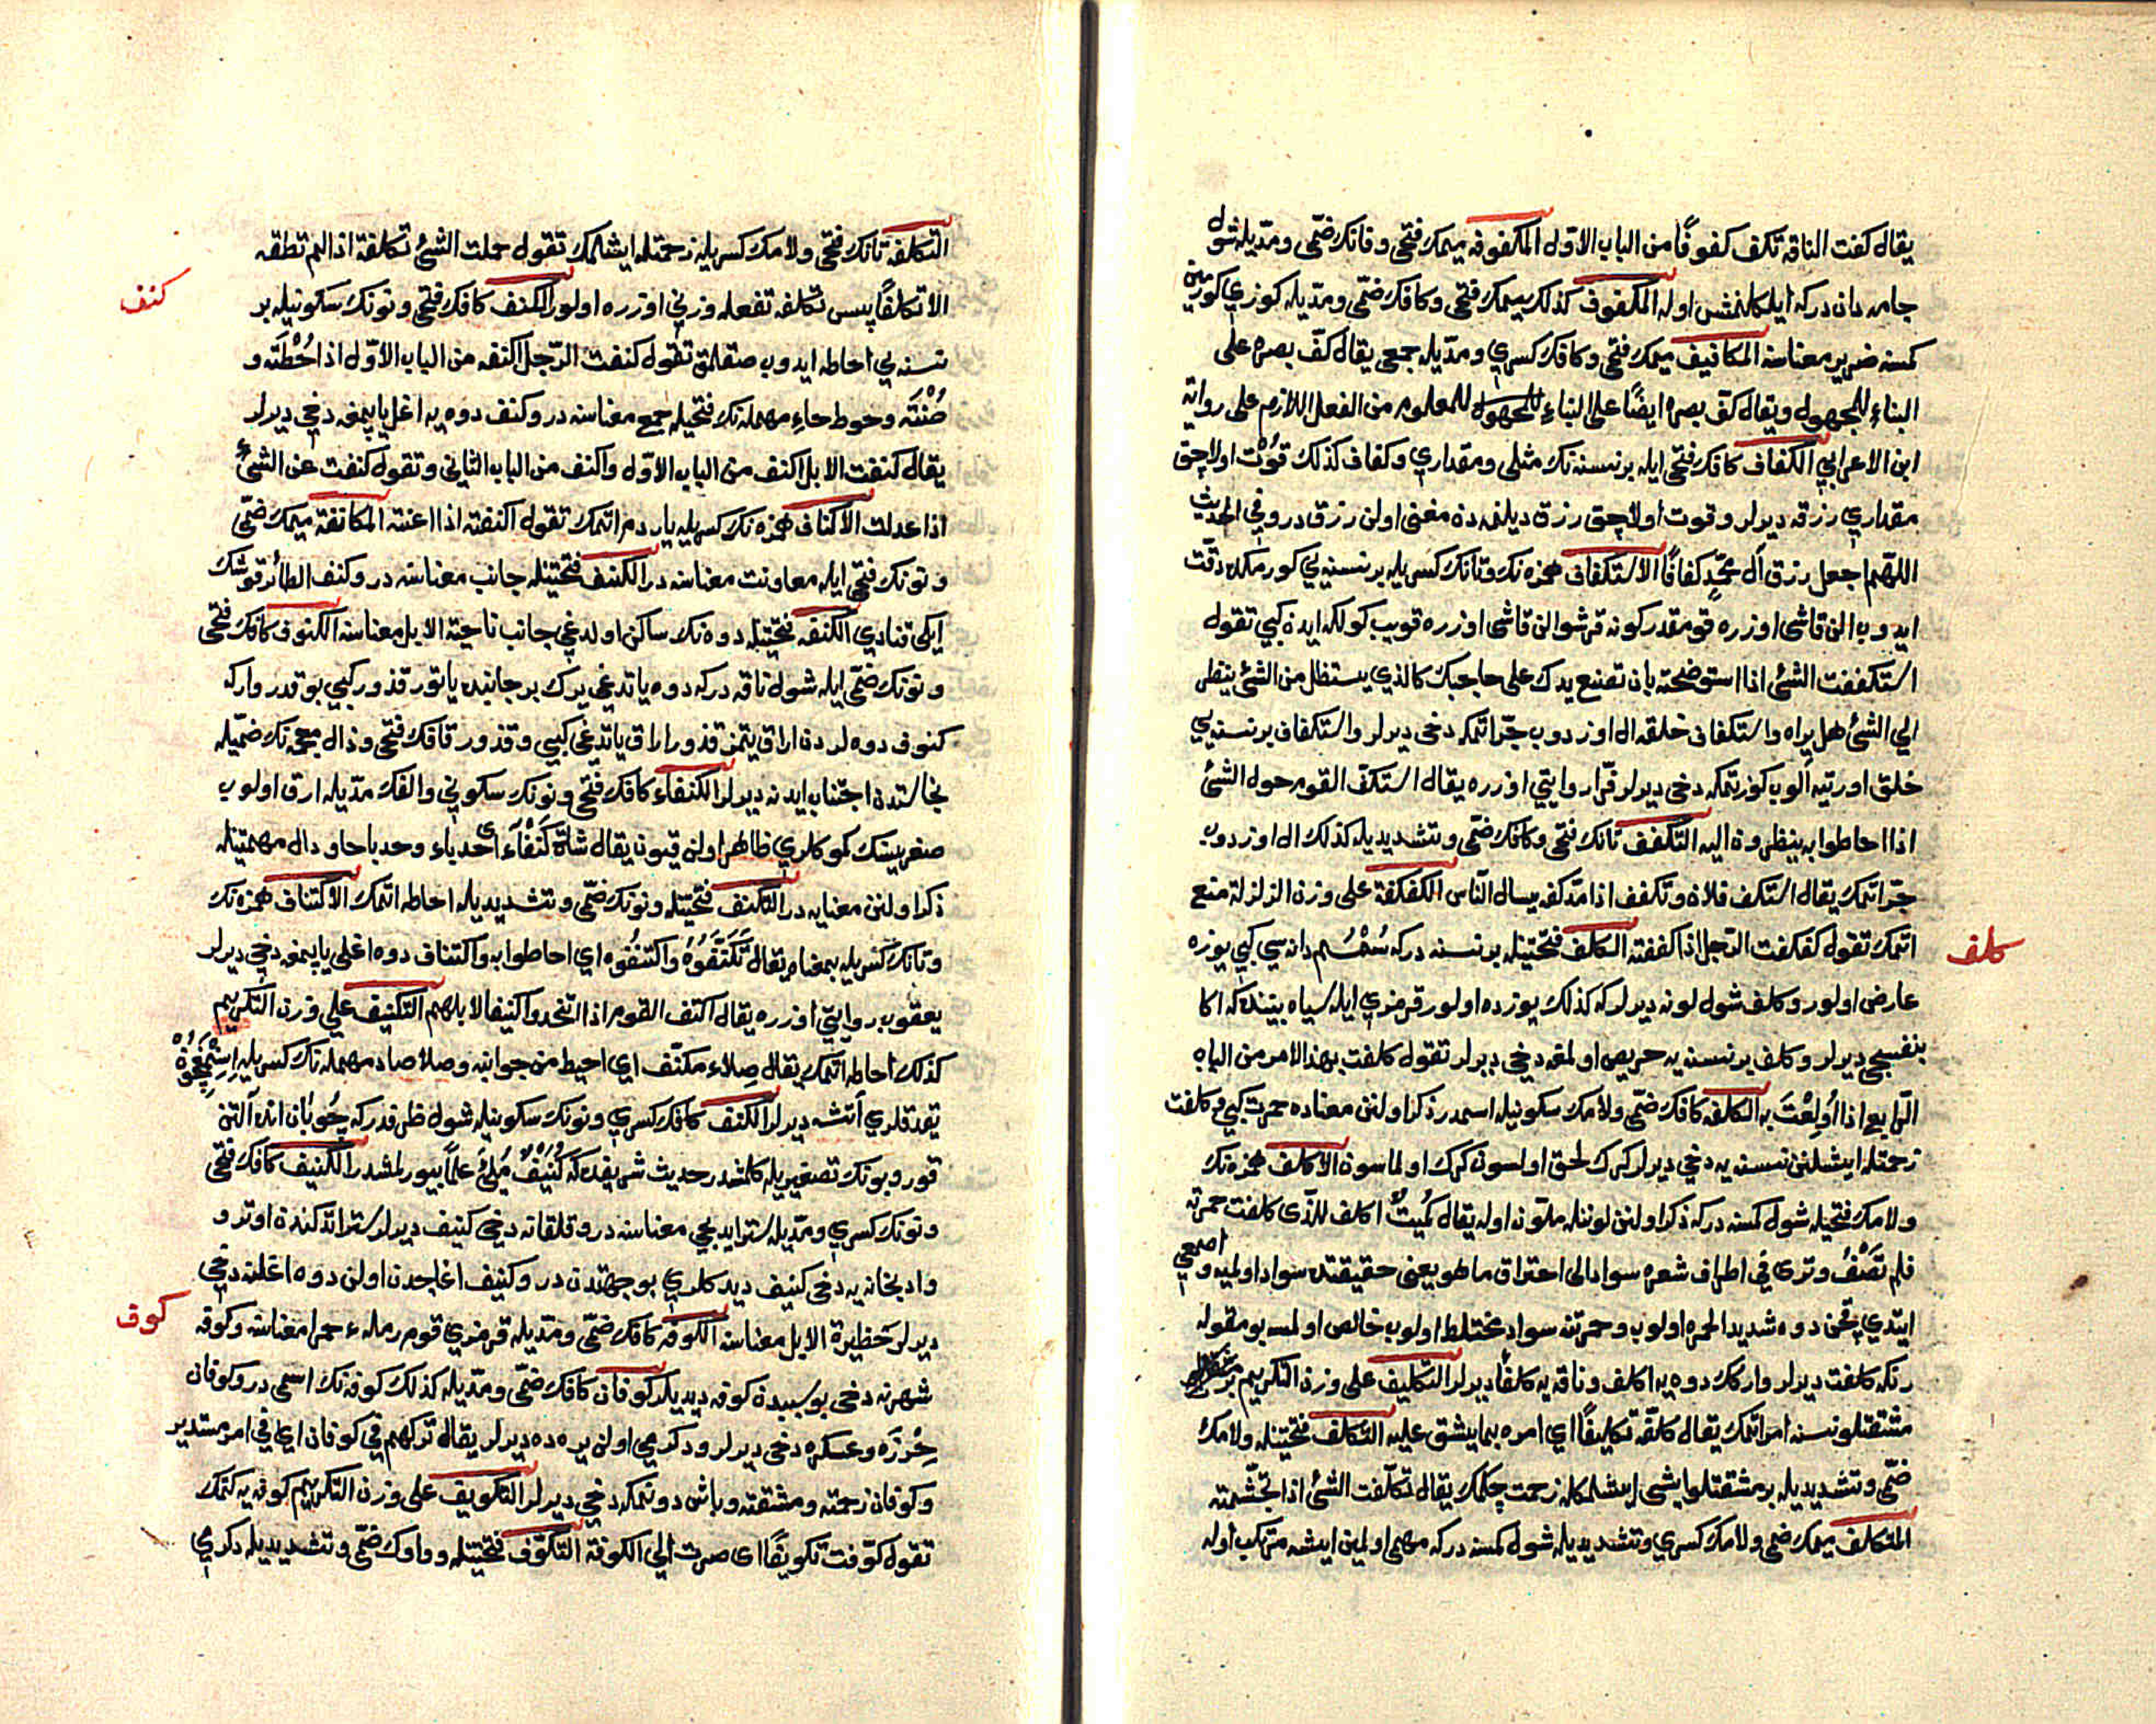 يقال كفت الناقه تكف كفوفًا من الباب الاوّل المكفوفه ميمك فتحى و فانك ضمّى و مدّيله شول
جامه دان دركه ايله كلنمش اوله المكفوف كذلك ميمك فتحى و كافك ضمّى و مدّيله كوزي كورمين
كمسنه ضرير معناسنه المكافيف ميمك فتحى و كافك كسري و مدّيله جمعى يقال كفّ بصره على
البناء للمجهول ويقال كفّ بصره ايضًا على البناء للمعلوم من الفعل اللازم على رواية
ابن الاعرابي الكفاف كافك فتحى ايله بر نسنه نك مثلى و مقداري و كفاف كذلك قوت اولاجق
مقداري رزقه ديرلر و قوت اولاجق رزق ديلنمدن مغنى اولن رزق در وفي الحديث
اللهم اجعل رزق آل محمّد كفافًا الاستكفاف همزه نك و تانك كسريله بر نسنه يي كورمكده دقّت
ايدوب الن قاشى اوزره قومقدر كونه قرشو الن قاشى اوزره قويب كولكه ايدن كبي تقول
استكففت الشئ اذا استوضحته بان تضع يدك على حاجبك كالذي يستظل من الشئ ينظر
الي الشئ هل يراه و استكفاف خلقه ال اوزدوب جرّ اتمكه دخى ديرلر و استكفاف بر نسنه يي
خلق اورتيه آلوب كوزتمكه دخى ديرلر فرّا روايتي اوزره يقال استكفّ القوم حول الشئ
اذا احاطوا به ينظرون اليه التكفف تانك فتحى و كافك ضمّى و تشديديله كذلك ال اوزدوب
جرّ اتمك يقال استكف فلان و تكفف اذا مدّ كفه يسال الناس الكفكفة على وزن الزلزلة منع
اتمك تقول كفكفت الرجل اذا كففته الكلف فتحتيله بر نسنه دركه سُمْسُم دانه سي كبي يوزه
عارض اولور و كلف شول لونه ديرلر كه كذلك يوزده اولور قرمزي ايله سياه بيننده كه اكا
بنفسجى ديرلر و كلف بر نسنه يه حريص اولمغه دخى ديرلر تقول كلفت بهذا الامر من الباب
الرابع اذا اُولِعْتَ به الكلفه كافك ضمّى و لامك سكونيله اسمدر ذكر اولنن معناده حمرت كبي و كلفت
زحمتله ايشلنن نسنه يه دخى ديرلر كرك لحق اولسون كرك اولماسون الاكلف همزه نك
و لامك فتحيله شول كمسنه دركه ذكر اولنن لونله ملون اوله يقال كُميتٌ اكلف للذّي كلفت حمرته
فلم تَصْفُ و ترى في اطراف شعره سوادا الى احتراق ما هو يعنى حقيقتده سواد اولميه و اصمعى
ايتدي قچن دوه شديد الحمره اولوب و حمرتنه سواد مختلط اولوب خالص اولمسه بومقوله
رنكه كلفت ديرلر و ارك دوه يه اكلف و ناقه يه كلفا ديرلر التكليف على وزن التكريم بر
مشقتلو نسنه امر اتمك يقال كلّفه تكليفًا اي امره بما يشق عليه التكلّف فتحتيله و لامك
ضمّى و تشديديله بر مشقتلو ايشى ايشلمكله زحمت چكمك يقال تكلّفت الشئ اذا تجشّمته
المتكلف ميمك ضمى و لامك كسري و تشديديله شول كمسنه دركه مهم اولمين ايشه مرتكب اوله
كلف
التكلفه تانك فتحى و لامك كسريله زحمتله ايشلمك تقول حملت الشئ تكلفة اذا لم تطقه
الا تكلفًا پس تكلفه تفعله وزني اوزره اولور الكنف كافك فتحى و نونك سكونيله بر
نسنه يي احاطه ايدوب صقلمق تقول كنفت الرّجل اكنفه من الباب الاوّل اذا حُطْتَه و
صُنْتَه و حوط حاءِ مهمله نك فتحيله جمع معناسنه در و كنف دوه يه اغل ياپمغه دخى ديرلر
يقال كنفت الابل اكنف من الباب الاوّل و اكنف من الباب الثاني و تقول كنفت عن الشئ
اذا عدلت الاكناف همزه نك كسريله ياردم اتمك تقول اكنفته اذا اعنته المكانفة ميمك ضمّى
و نونك فتحى ايله معاونت معناسنه در الكنف فتحتيله جانب معناسنه در و كنف الطائر قوشك
ايكى قنادي الكنفه فتحتيله دوه نك ساكن اولدغى جانب ناحية الابل معناسنه الكنوف كافك فتحى
و نونك ضمّى ايله شول ناقه دركه دوه ياتدغى يرك بر جانبنده ياتور قذور كبي بو قدر وار كه
كنوف دوه لردن اراق يتمز قذور اراق ياتدغى كبي و قذور قافك فتحى و ذال معجمه نك ضمّيله
نجاستدن اجتناب ايدنه ديرلر الكنفاء كافك فتحى و نونك سكوني و الفك مدّيله ارق اولوب
صغريسنك كموكلري ظاهر اولن قيون يقال شاة كَنْفَاءُ اى حدباء و حدبا حا و دال مهملتيله
ذكر اولنن معنايه در التكنف فتحتيله و نونك ضمّى و تشديديله احاطه اتمك الاكتناف همزه نك
و تانك كسريله بمعناه يقال تَكَنَّفُوهُ و اكتنفوه اي احاطوا به و اكتناف دوه اغلى ياپمغه دخى ديرلر
يعقوب روايتي اوزره يقال اكتنف القوم اذا اتخذوا كنيفا لابلهم التكنيف على وزن التكريم
كذلك احاطه اتمك يقال صِلاء مكنّف اي احيط من جوانبه و صلا صاد مهمله نك كسريله
يقدقلري آتشه ديرلر الكنف كافك كسري و نونك سكونيله شول ظرفدر كه چُوبان انده آلتن
قور و بونك تصغيريله كلمشدر حديث شريفده كه كُنَيْفٌ مُلِئَ علمًا بيورلمشدر الكنيف كافك فتحى
و نونك كسري و مدّيله ستر ايديجى معناسنه در و قلقانه دخى كنيف ديرلر ستر اتدكندن اوترو
و ادبخانه يه دخى كنيف ديدكلري بو جهتدن در و كنيف اغاجدن اولن دوه اغلنه دخى
ديرلر حظيرة الابل معناسنه الكوفه كافك ضمّى و مدّيله قرمزي قوم رملهء حمرا معناسنه و كوفه
شهرنه دخى بو سببدن كوفه ديديلر كوفان كافك ضمّى و مدّيله كذلك كوفه نك اسمى در و كوفان
و عسكره دخى ديرلر و دكرمي اولن يره ده ديرلر يقال تركهم في كوفان اي في امر مستدير
و كوفان زحمته و مشقته و باش دونمكه دخى ديرلر التكويف على وزن التكريم كوفه يه كتمك
تقول كوّفت تكويفًا اى صرت الي الكوفة التكوّف فتحتيله و واوك ضمّى و تشديديله دكرمي
كنف
كوف